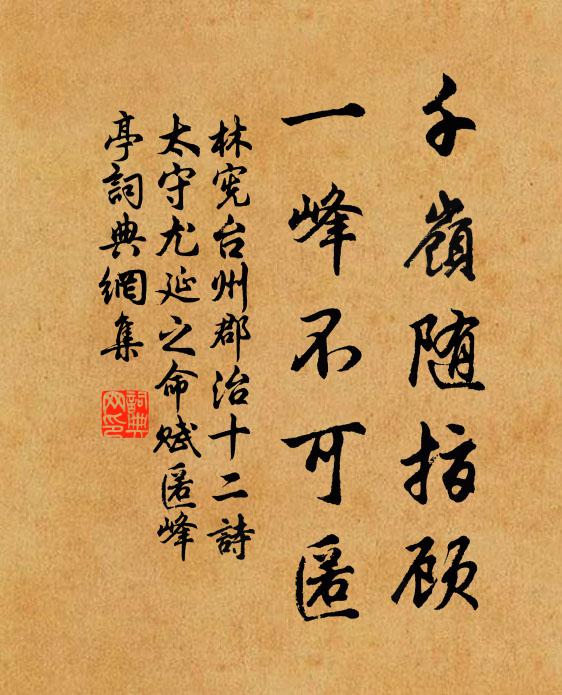 千嶺随指顾
一峰不可匿
林宪台州郡治十二詩
太守尤延之命赋匿峰
亭詞典網集
詞典网印